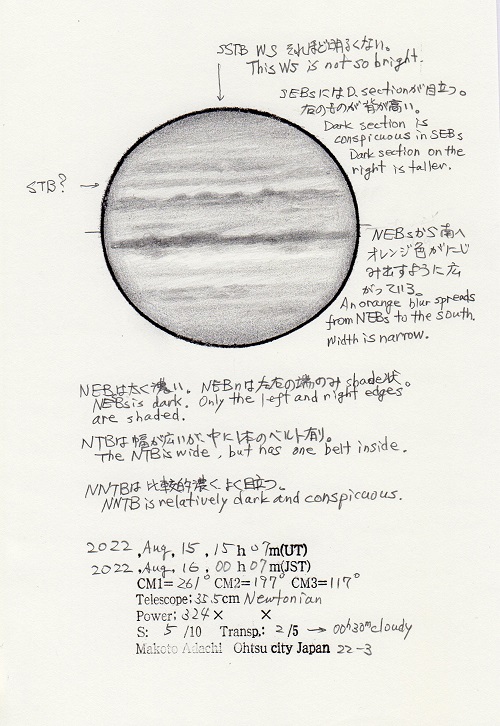 SSTB WS それほど明るくない。
This WS is not so bright.
SEBsにはD.sectionが目立つ。
右のものが背が高い。
Dark section is
conspicuous in SEBs
Dark section on the
right is taller.
STB?
NEBsからS南へ
オレンジ色がにじ
み出すように広
がっている。
An orange blur spreads
from NEBs to the south.
Width is narrow.
NEBは太く濃い。NEBnは左右の端のみshade状。
NEBs is dark. Only the left and right edges
are shaded.
NTBは幅が広いが、中に1本のベルト有り。
The NTB is wide, but has one belt inside.
NNTBは比較的濃く、よく目立つ。
NNTB is relatively dark and conspicuous.
2022 ,Aug, 15 ,15 h 07m(UT)
2022 ,Aug, 16 ,00 h 07m(JST)
CM1=261° CM2=197° CM3=117°
Telescope;35.5cm Newtonian
Power; 324× ×
S: 5 /10 Transp.; 2/5 → 00h30m cloudy
Makoto Adachi Ohtsu city Japan 22-3